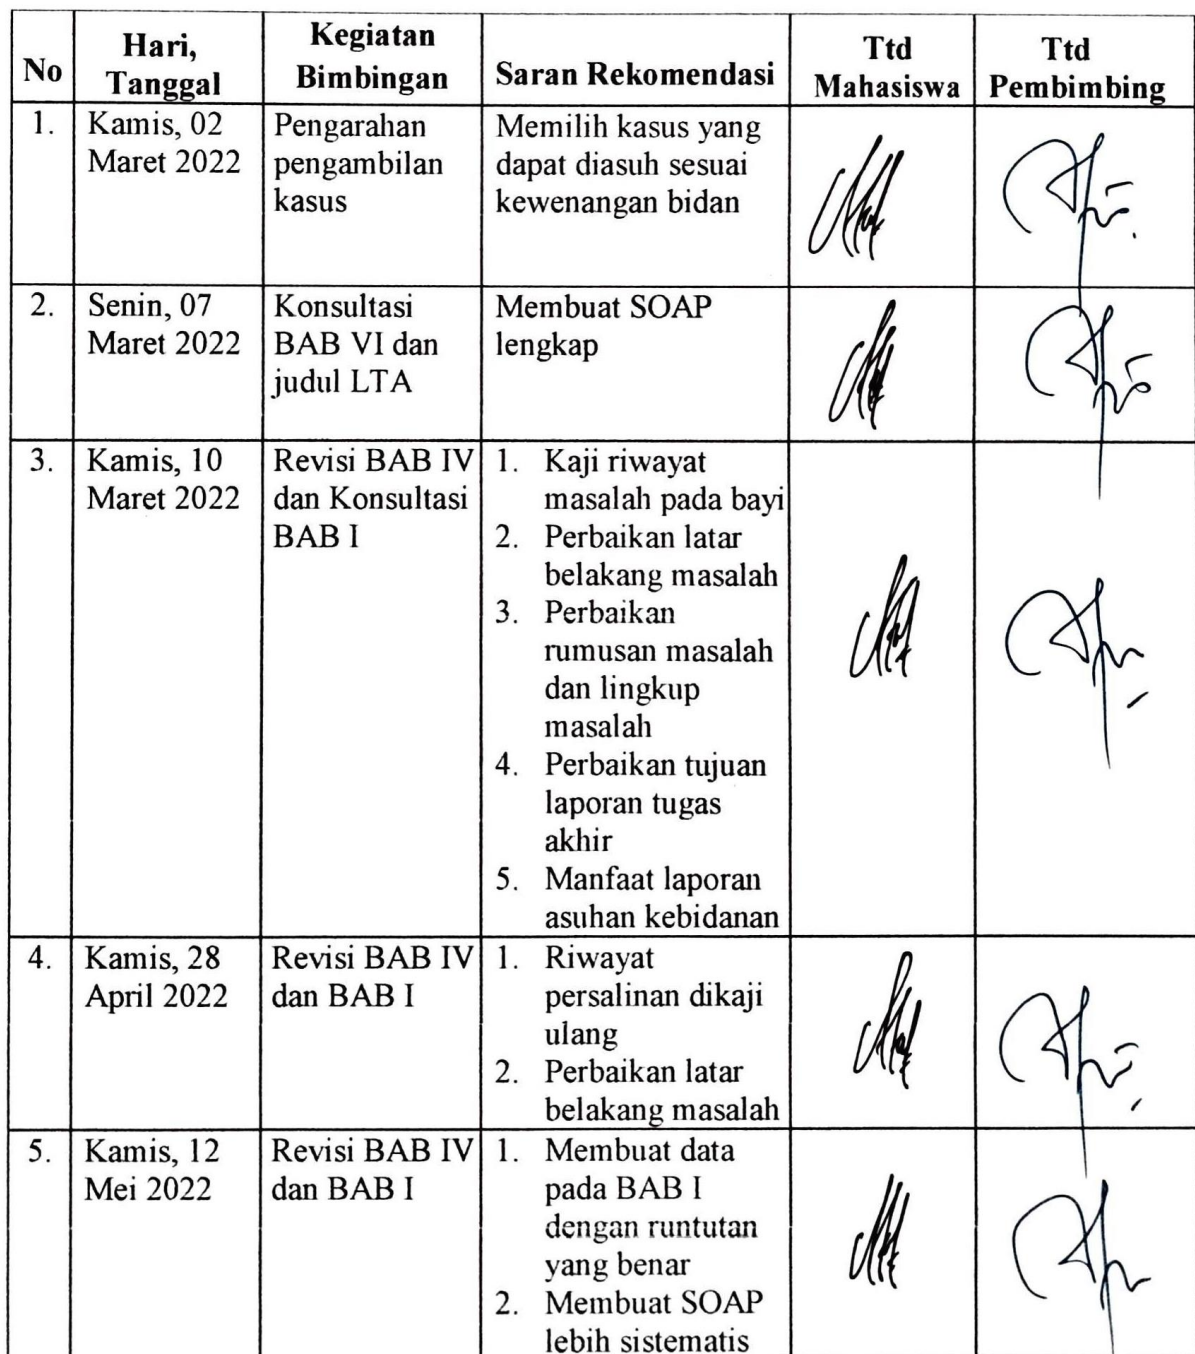 No
Hari,
Tanggal
Kegiatan
Bimbingan
Saran Rekomendasi
Ttd
Mahasiswa
Ttd
Pembimbing
1.
Kamis, 02
Maret 2022
Pengarahan
pengambilan
kasus
Memilih kasus yang
dapat diasuh sesuai
kewenangan bidan
2.
Senin, 07
Maret 2022
Konsultasi
BAB VI dan
judul LTA
Membuat SOAP
lengkap
3.
Kamis, 10
Maret 2022
Revisi BAB IV
dan Konsultasi
BAB I
1. Kaji riwayat
masalah pada bayi
2. Perbaikan latar
belakang masalah
3. Perbaikan
rumusan masalah
dan lingkup
masalah
4. Perbaikan tujuan
laporan tugas
akhir
5. Manfaat laporan
asuhan kebidanan
4.
Kamis, 28
April 2022
Revisi BAB IV
dan BAB I
1. Riwayat
persalinan dikaji
ulang
2. Perbaikan latar
belakang masalah
5.
Kamis, 12
Mei 2022
Revisi BAB IV
dan BAB I
1. Membuat data
pada BAB I
dengan runtutan
yang benar
2. Membuat SOAP
lebih sistematis